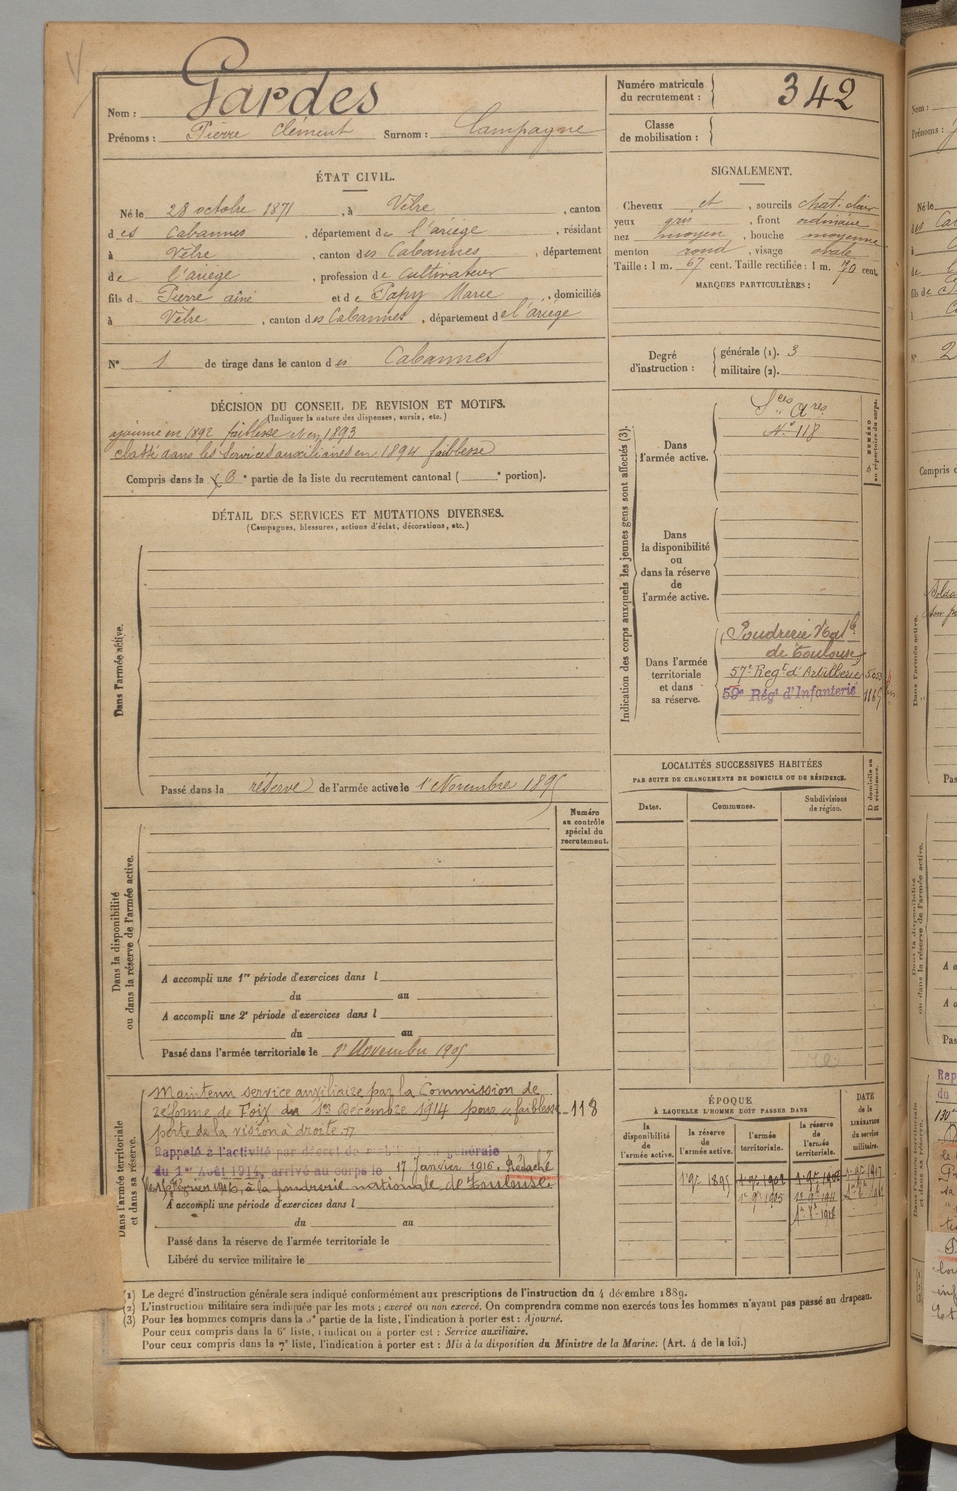 Nom : Gardes
Prénoms : Pierre Clément Surnom : Campagne
Numéro matricule du recrutement : 342
Classe de mobilisation :
ÉTAT CIVIL.
Né le 28 octobre 1871, à Vèbre, canton
des Cabannes, département de l'ariège, résidant
à Vèbre, canton des Cabannes, département
de l'ariège, profession de cultivateur
fils de Pierre ainé et de Papy Marie, domiciliés
à Vèbre, canton des Cabannes, département de l'ariège
N° 1 de tirage dans le canton des Cabannes
SIGNALEMENT.
Cheveux et, sourcils chat. clair
yeux gris, front ordinaire
nez moyen, bouche moyenne
menton rond, visage ovale
Taille : 1 m. 67 cent. Taille rectifiée : 1 m. 70 cent.
MARQUES PARTICULIÈRES :
Degré d'instruction : générale (1). 3
militaire (2).
DÉCISION DU CONSEIL DE REVISION ET MOTIFS.
(Indiquer la nature des dispenses, sursis, etc.)
ajourné en 1892 faiblesse et en 1893
classé dans les services auxiliaires en 1894 faiblesse
Compris dans la 6e partie de la liste du recrutement cantonal ( e portion).
DÉTAIL DES SERVICES ET MUTATIONS DIVERSES.
(Campagnes, blessures, actions d'éclat, décorations, etc.)
Dans l'armée active.
Passé dans la réserve de l'armée active le 1er Novembre 1895
Indication des corps auxquels les jeunes gens sont affectés (3).
NUMÉRO au répertoire du corps.
Dans l'armée active.
Sces Ares
N° 118
Dans la disponibilité ou dans la réserve de l'armée active.
Dans l'armée territoriale et dans sa réserve.
Poudrerie Natle
de Toulouse
57e Régt d'Artillerie
59e Régt d'Infanterie
LOCALITÉS SUCCESSIVES HABITÉES
PAR SUITE DE CHANGEMENTS DE DOMICILE OU DE RÉSIDENCE.
Dates.
Communes.
Subdivisions de région.
D domicile ou R résidence.
Numéro au contrôle spécial du recrutement.
Dans la disponibilité ou dans la réserve de l'armée active.
A accompli une 1re période d'exercices dans l
du au
A accompli une 2e période d'exercices dans l
du au
Passé dans l'armée territoriale le 1er Novembre 1905
Dans l'armée territoriale et dans sa réserve.
Maintenu service auxiliaire par la Commission de
réforme de Foix du 1er Décembre 1914 pour "faiblesse 118
perte de la vision à droite"
Rappelé à l'activité par décret de mobilisation générale
du 1er Août 1914, arrivé au corps le 17 Janvier 1916. Détaché
le Février 1916, à la poudrerie nationale de Toulouse
A accompli une période d'exercices dans l
du au
Passé dans la réserve de l'armée territoriale le
Libéré du service militaire le
ÉPOQUE
À LAQUELLE L'HOMME DOIT PASSER DANS
la disponibilité de l'armée active.
la réserve de l'armée active.
l'armée territoriale.
la réserve de l'armée territoriale.
DATE de la LIBÉRATION du service militaire.
1er 9e 1895
(1) Le degré d'instruction générale sera indiqué conformément aux prescriptions de l'instruction du 4 décembre 1889.
(2) L'instruction militaire sera indiquée par les mots : exercé ou non exercé. On comprendra comme non exercés tous les hommes n'ayant pas passé au drapeau.
(3) Pour les hommes compris dans la 5e partie de la liste, l'indication à porter est : Ajourné.
Pour ceux compris dans la 6e liste, l'indication à porter est : Service auxiliaire.
Pour ceux compris dans la 7e liste, l'indication à porter est : Mis à la disposition du Ministre de la Marine. (Art. 4 de la loi.)